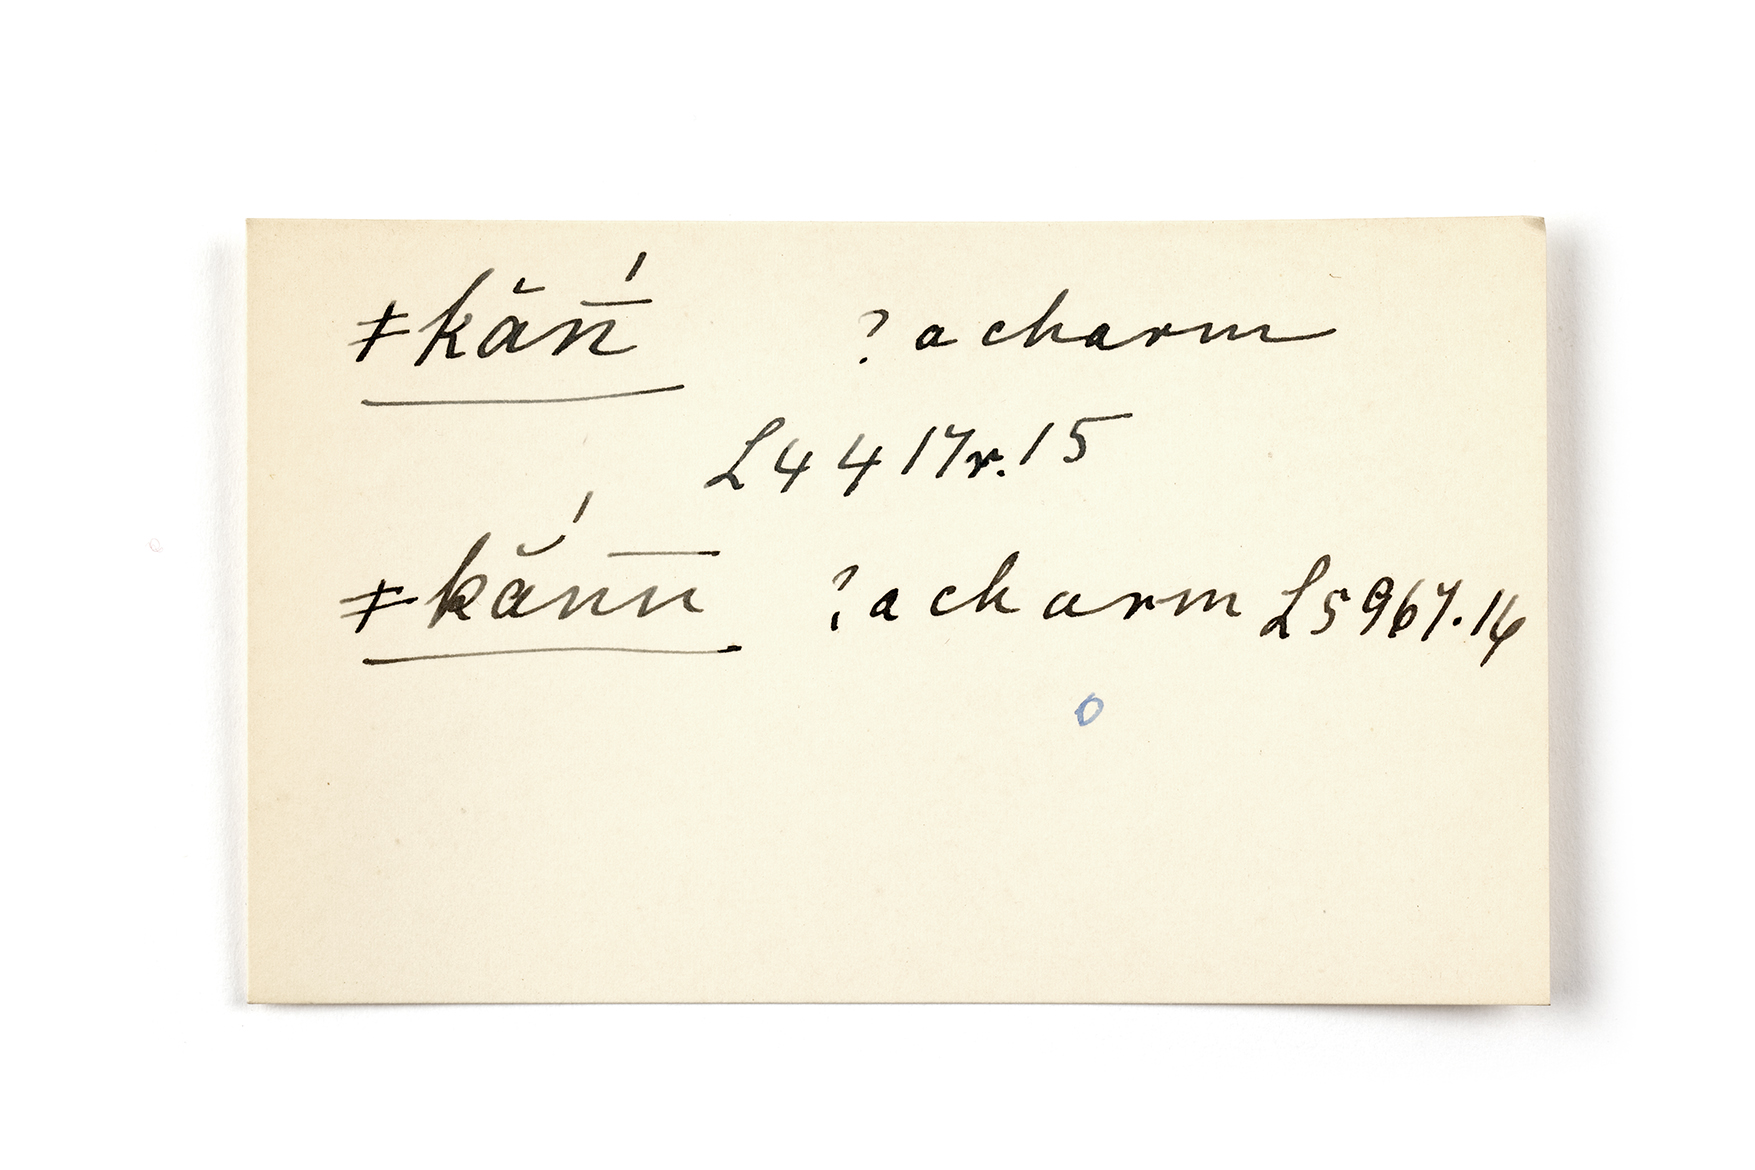 ǂkăn̄́ ? a charm
L 4 4 17 r. 15
ǂkắn̄n̄ ? a charm L 5967. 16
0